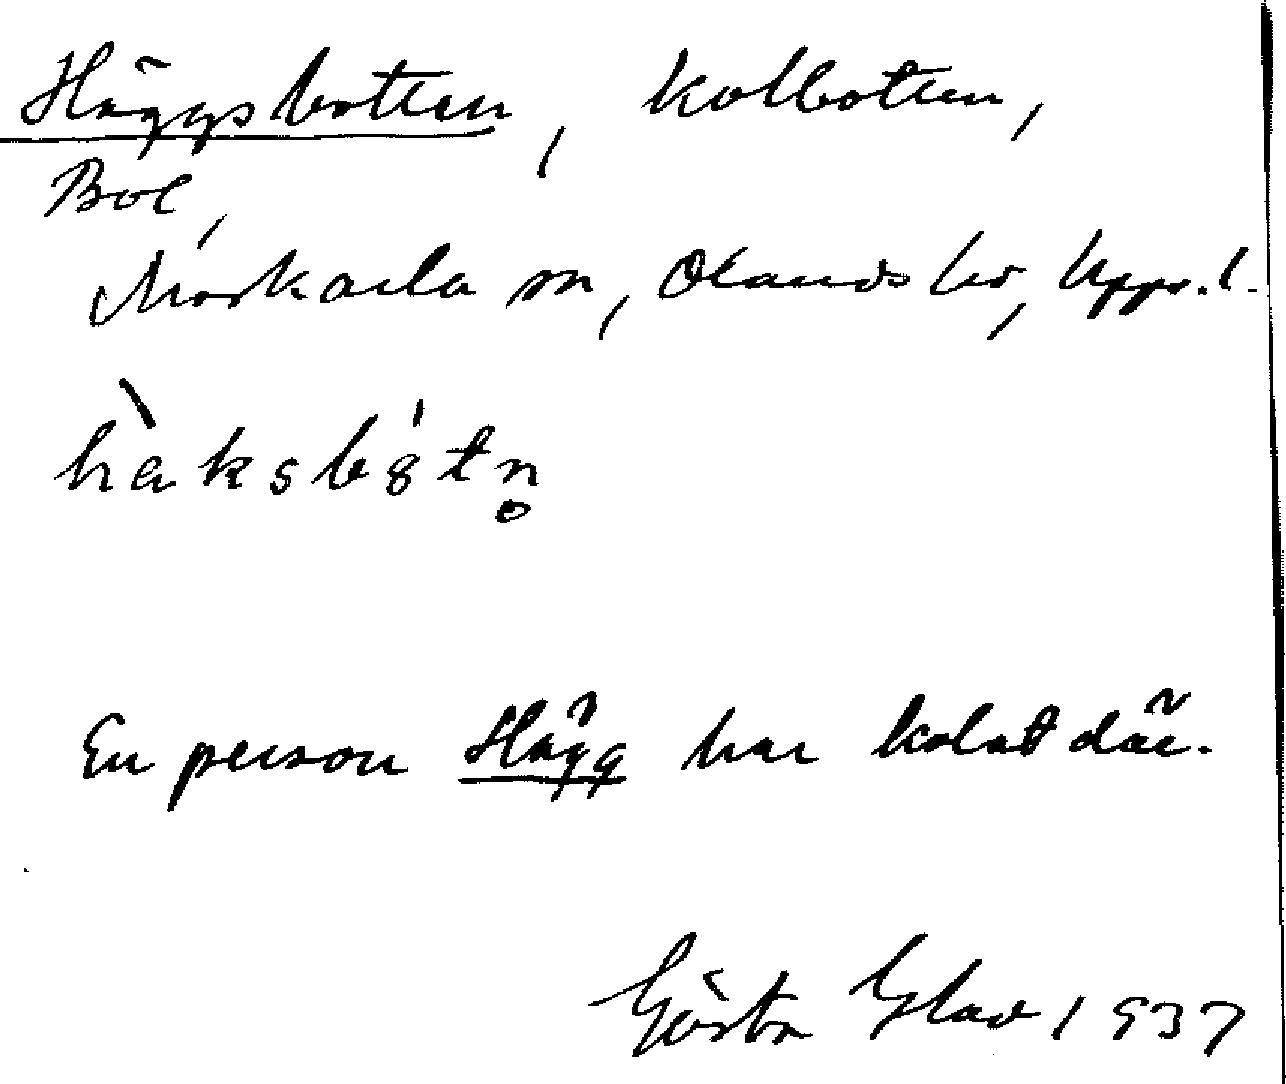 Häggsbotten, kolbotten,
Bol,
Morkarla sn, Olands hd, Uppl.
hàksbȣ́tn̥
En person Hägg har kolat där.
Gösta Glav 1937